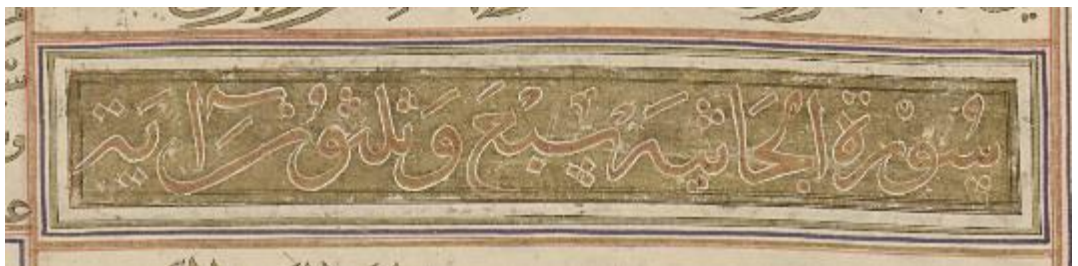 سُورَةُ الْجَاثِيَةِ سَبْعٌ وَثَلٰثُونَ اٰيَة